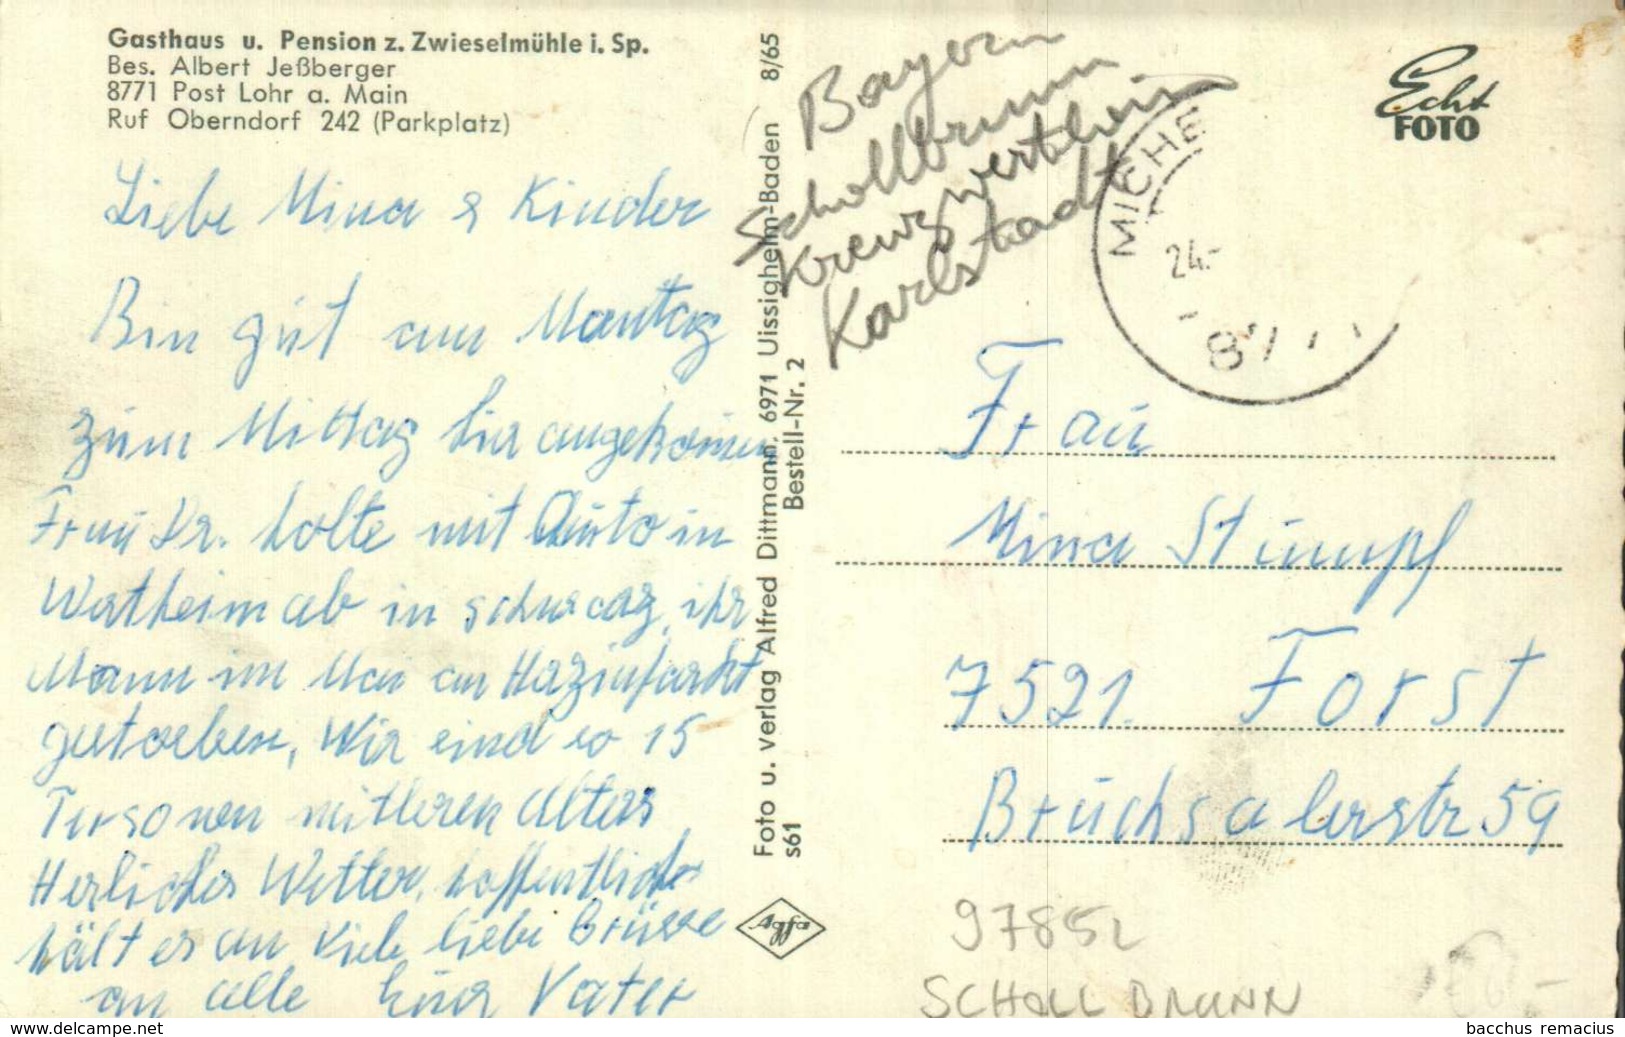 Gasthaus u. Pension z. Zwieselmühle i. Sp.
Bes. Albert Jeßberger
8771 Post Lohr a. Main
Ruf Oberndorf 242 (Parkplatz)
Liebe Mina & Kinder
Bin gut am Montag
zum Mittag hier angekommen
Frau Dr. holte mit Auto in
Wertheim ab in schwarz, ihr
Mann im Mai an Herzinfarkt
gestorben, Wir sind so 15
Personen mittleren Alters
Herliches Wetter, hoffentlich
hält es an Viele liebe Grüsse
an alle Euer Vater
Foto u. verlag Alfred Dittmann, 6971 Uissigheim-Baden 8/65
s61 Bestell-Nr. 2
Agfa
Bayern
Schollbrunn
Kreuzwertheim
Karlstadt
MICHE
24.-
87
Echt
FOTO
Frau
Mina Stumpf
7521 Forst
Bruchsalerstr 59
97852
SCHOLLBRUNN
delcampe.net
bacchus remacius